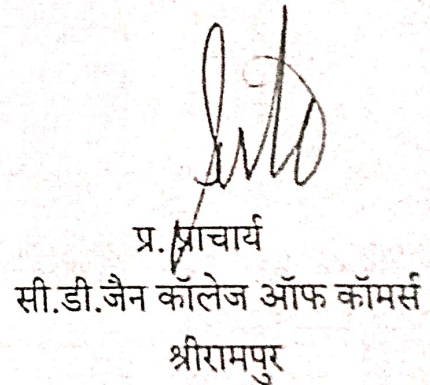 प्र. प्राचार्य
सी.डी.जैन कॉलेज ऑफ कॉमर्स
श्रीरामपुर